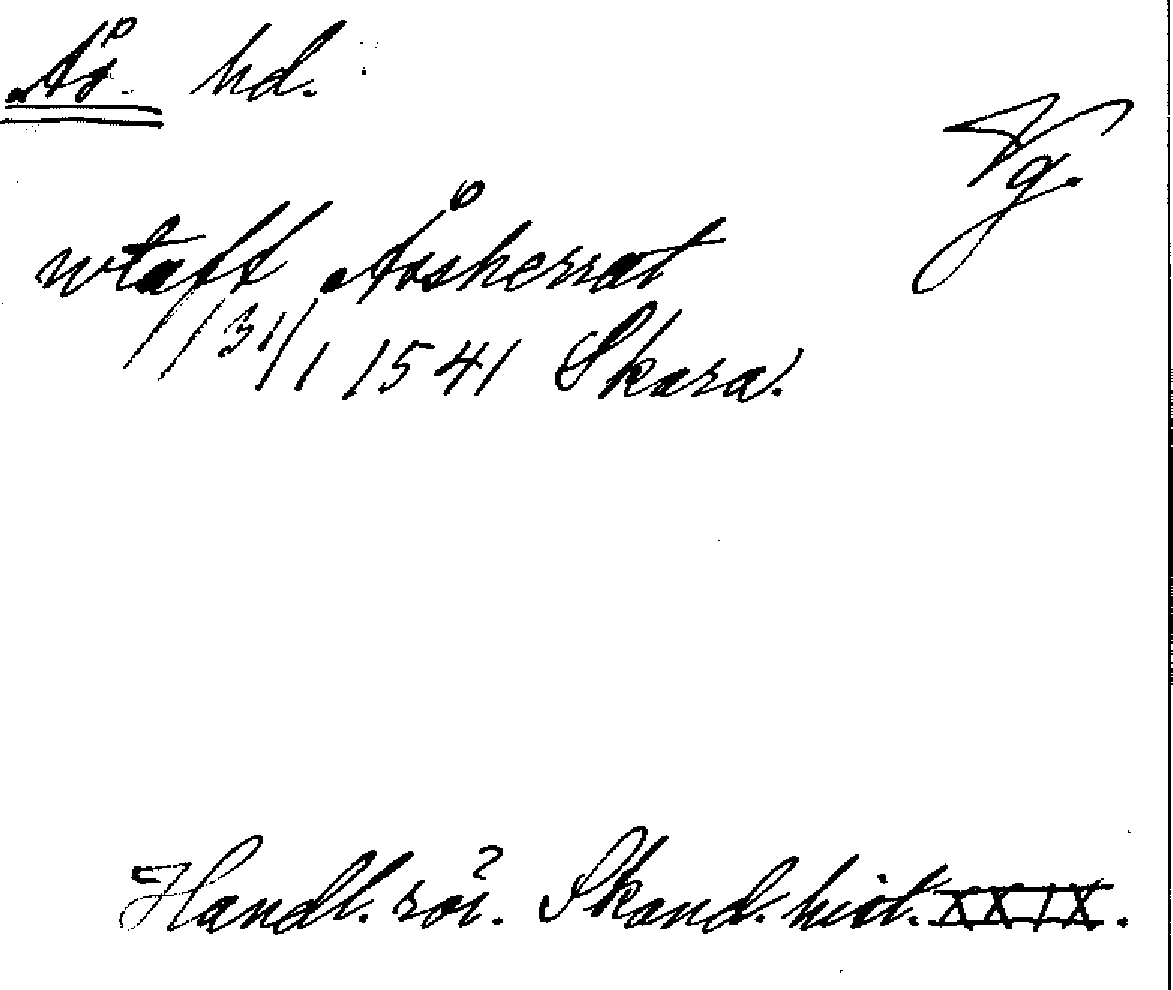 Ås hd.
Vg.
wtaff Åsherrat
31/1 1541 Skara.
Handl. rör. Skand. hist. XXIX.